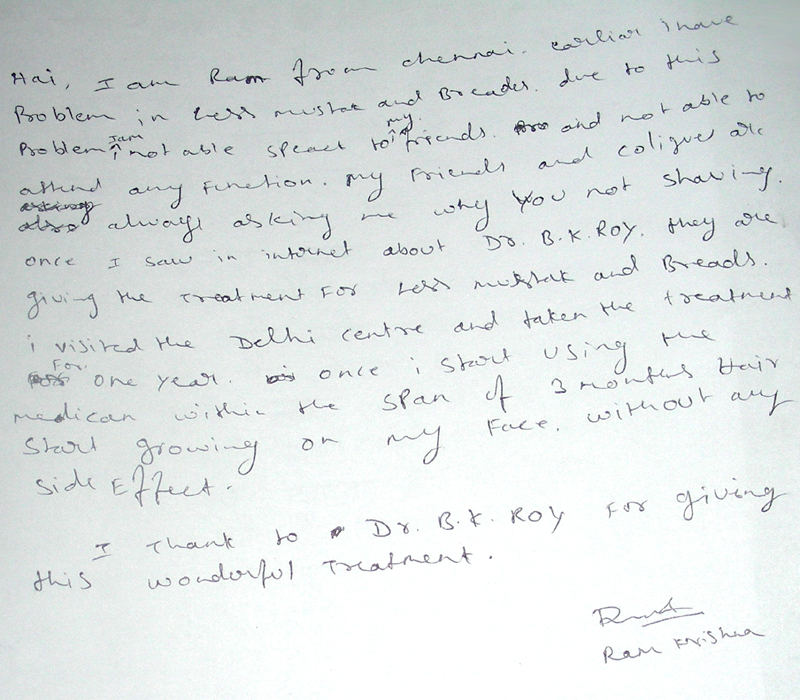 Hai, I am Ram from chennai. earliar i have
Problem in Less mustak and Breades. due to this
Problem I am not able speact to my friends. and not able to
attend any Function. my Friends and coligues are
always asking me why you not shaving.
once I saw in internet about Dr. B.K. ROY. they are
giving the Treatment For Less mustak and Breads.
i visited the Delhi centre and taken the treatment
For one year. once i start using the
medican within the span of 3 months Hair
Start growing on my Face. without any
side Effect.
I Thank to Dr. B.K. ROY For giving
this wonderful Treatment.
Ram Krishna